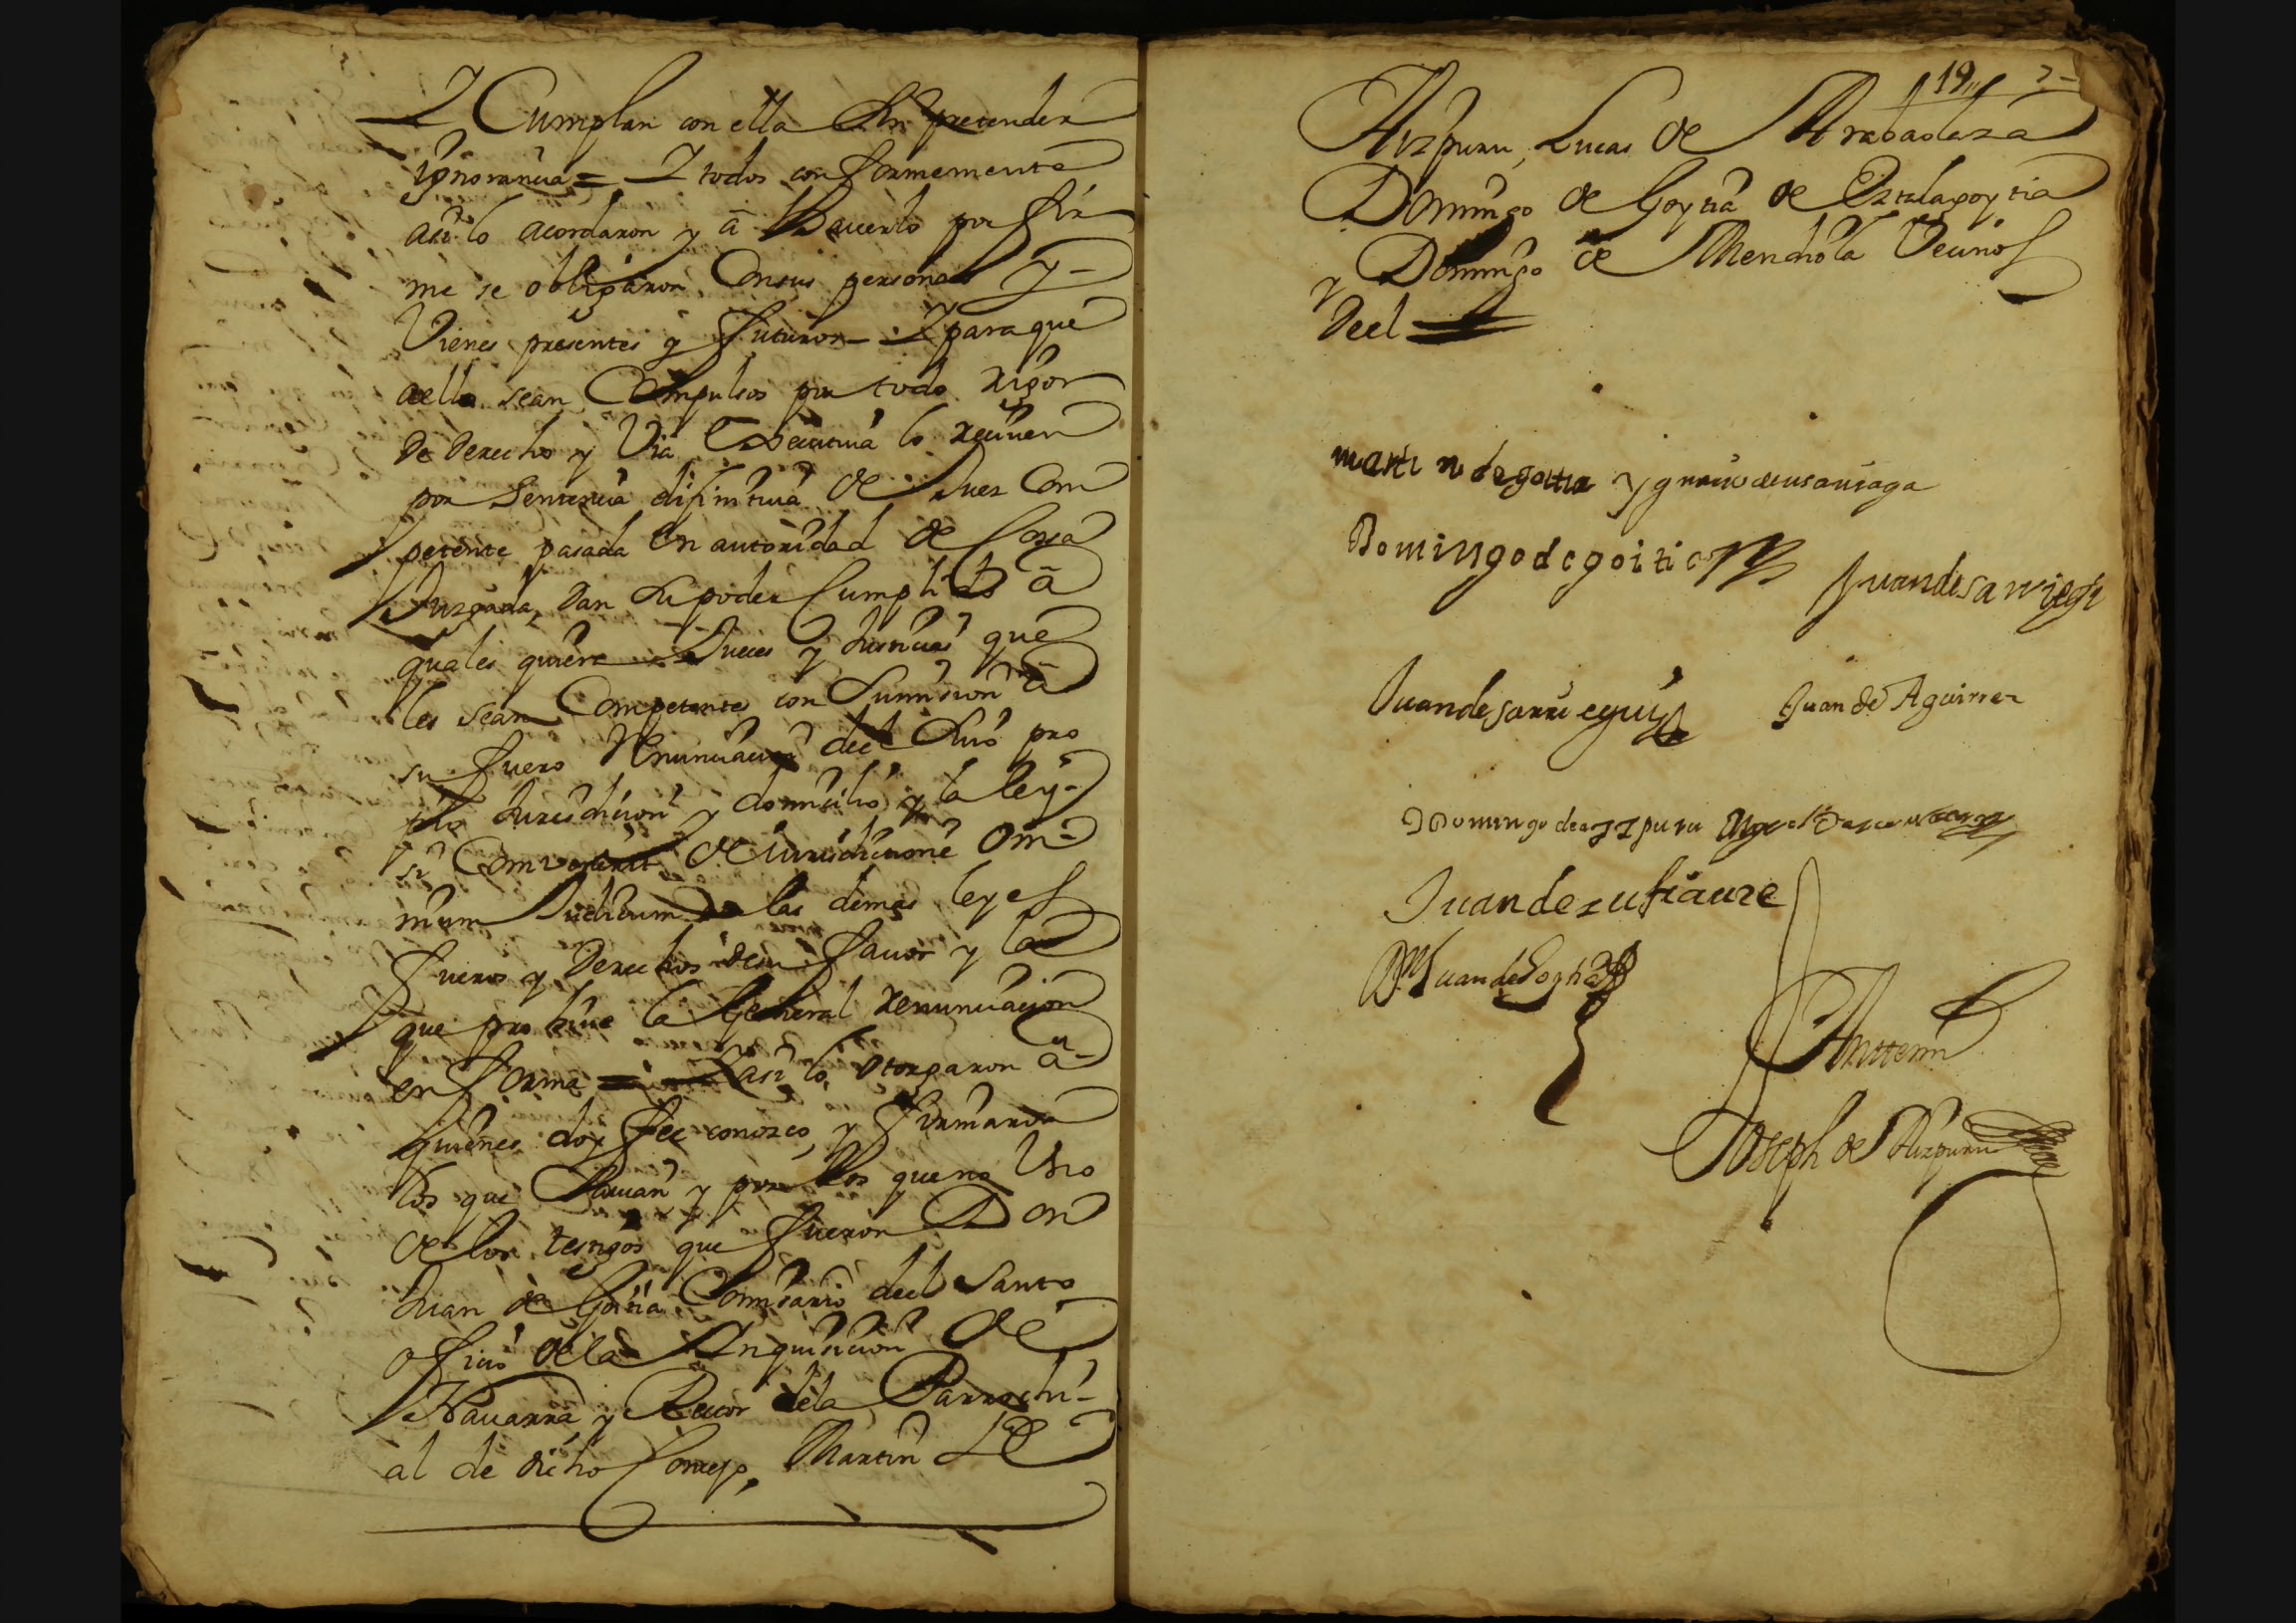 Y Cumplan con ella sin pretender
ignorancia = Y todos conformemente
asi lo acordaron y â hacerlo por fir
me se obligaron Con sus personas y -
Vienes presentes y futuros - Y para que
aello sean Compulsos por todo rigor
de derecho y Via Executiua lo reciuen
por Sentencia difinitiua de Juez Com
petente pasada En autoridad de Cossa
Juzgada, dan su poder Cumplido â
quales quiera Jueces y Justicias que
les sean Competentes con Sumision â
su fuero Renunciacion del suio pro
pio Jurisdicion y domicilio y la ley -
si Combenerit de iurisdicione Om -
nium Judicum y las demas leyes
fueros y Derechos de su fauor y la
que prohiue la General renunciacion
en forma = Y asi lo otorgaron â -
quienes doy fee conozco, y firmaron
los que sauian y por los que no Uno
de los testigos que fueron Don
Juan de Goitia Comisario del Santo
oficio de la Inquisicion de
Nauarra y Rector dela Parrochi -
al de dicho Concejo, Martin de
19
Aizpuru, Lucas de Arabaolaza
Domingo de Goytia de Estalagoytia
y Domingo de Mendiola Vecinos
deel
martin de goitia ygnacio de usauiaga
Domingo de goitia Juan de sarriegi
Juan de sarriegui Juan de Aguirre
Domingo de aizpuru
Juan de zufiaurre
Dn Juan de Goytia
Antemi
Joseph de Aizpuru